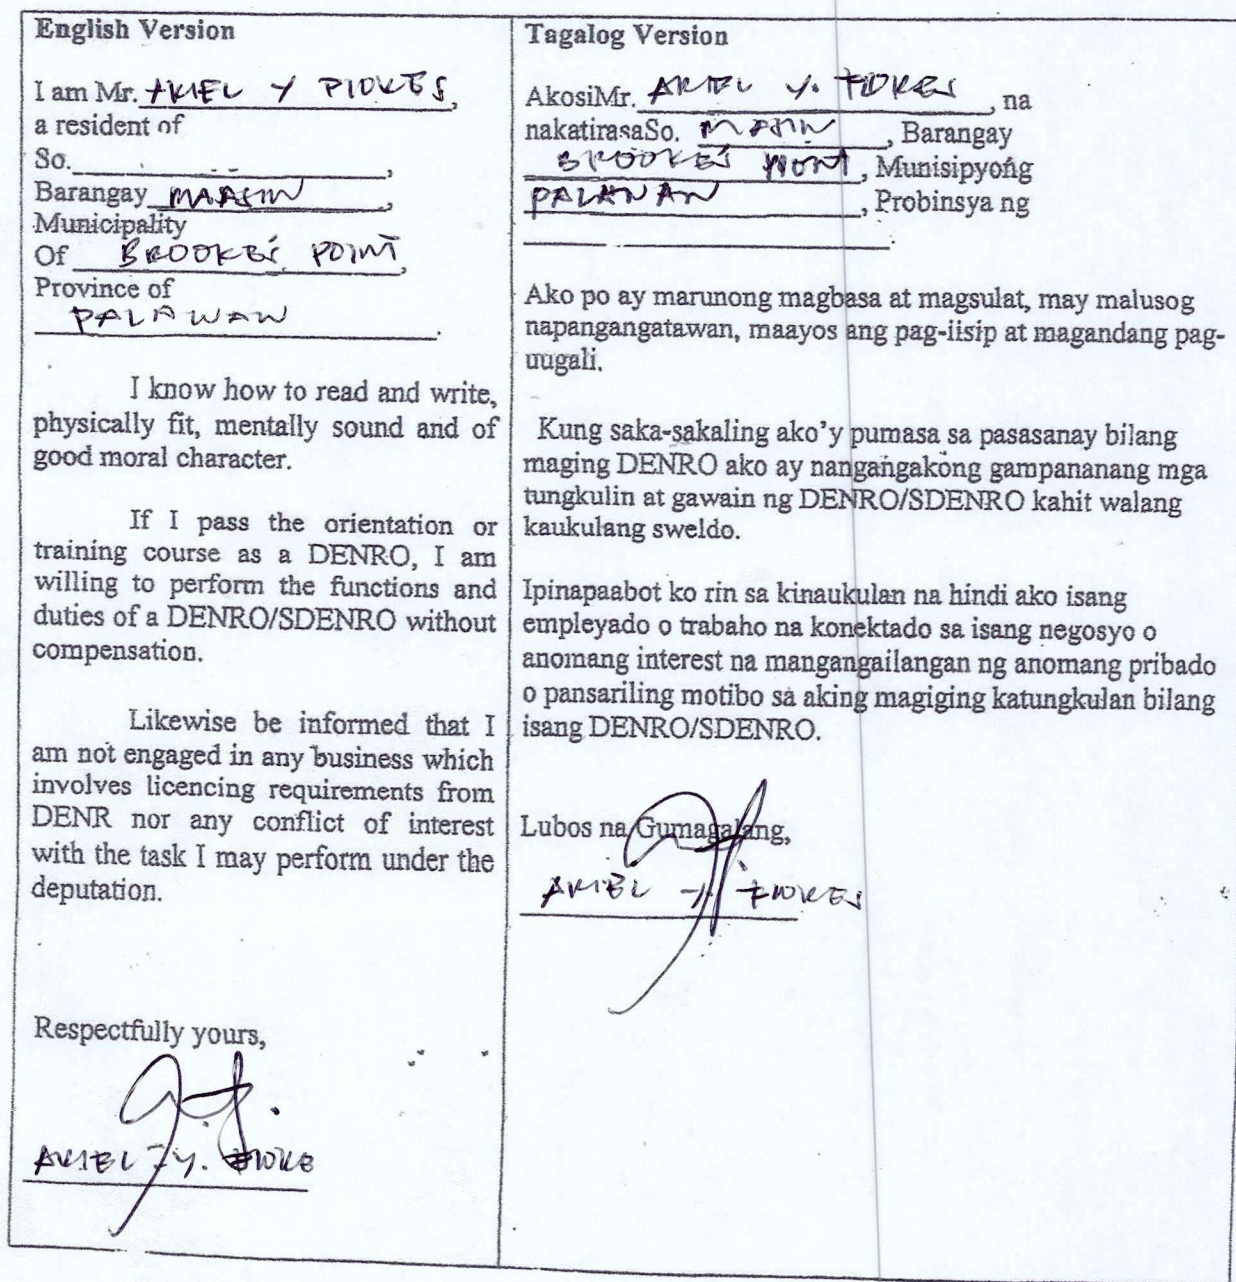 English Version
I am Mr. ARIEL Y FLORES,
a resident of
So. ,
Barangay MAASIN ,
Municipality
Of BROOKE'S POINT,
Province of
PALAWAN .
I know how to read and write,
physically fit, mentally sound and of
good moral character.
If I pass the orientation or
training course as a DENRO, I am
willing to perform the functions and
duties of a DENRO/SDENRO without
compensation.
Likewise be informed that I
am not engaged in any business which
involves licencing requirements from
DENR nor any conflict of interest
with the task I may perform under the
deputation.
Respectfully yours,
ARIEL Y. FLORE
Tagalog Version
AkosiMr. ARIEL Y. FLORES , na
nakatirasaSo. MAASIN , Barangay
BROOKE'S POINT , Munisipyong
PALAWAN , Probinsya ng
.
Ako po ay marunong magbasa at magsulat, may malusog
napangangatawan, maayos ang pag-iisip at magandang pag-
uugali.
Kung saka-sakaling ako'y pumasa sa pasasanay bilang
maging DENRO ako ay nangangakong gampananang mga
tungkulin at gawain ng DENRO/SDENRO kahit walang
kaukulang sweldo.
Ipinapaabot ko rin sa kinaukulan na hindi ako isang
empleyado o trabaho na konektado sa isang negosyo o
anomang interest na mangangailangan ng anomang pribado
o pansariling motibo sa aking magiging katungkulan bilang
isang DENRO/SDENRO.
Lubos na Gumagalang,
ARIEL Y. FLORES